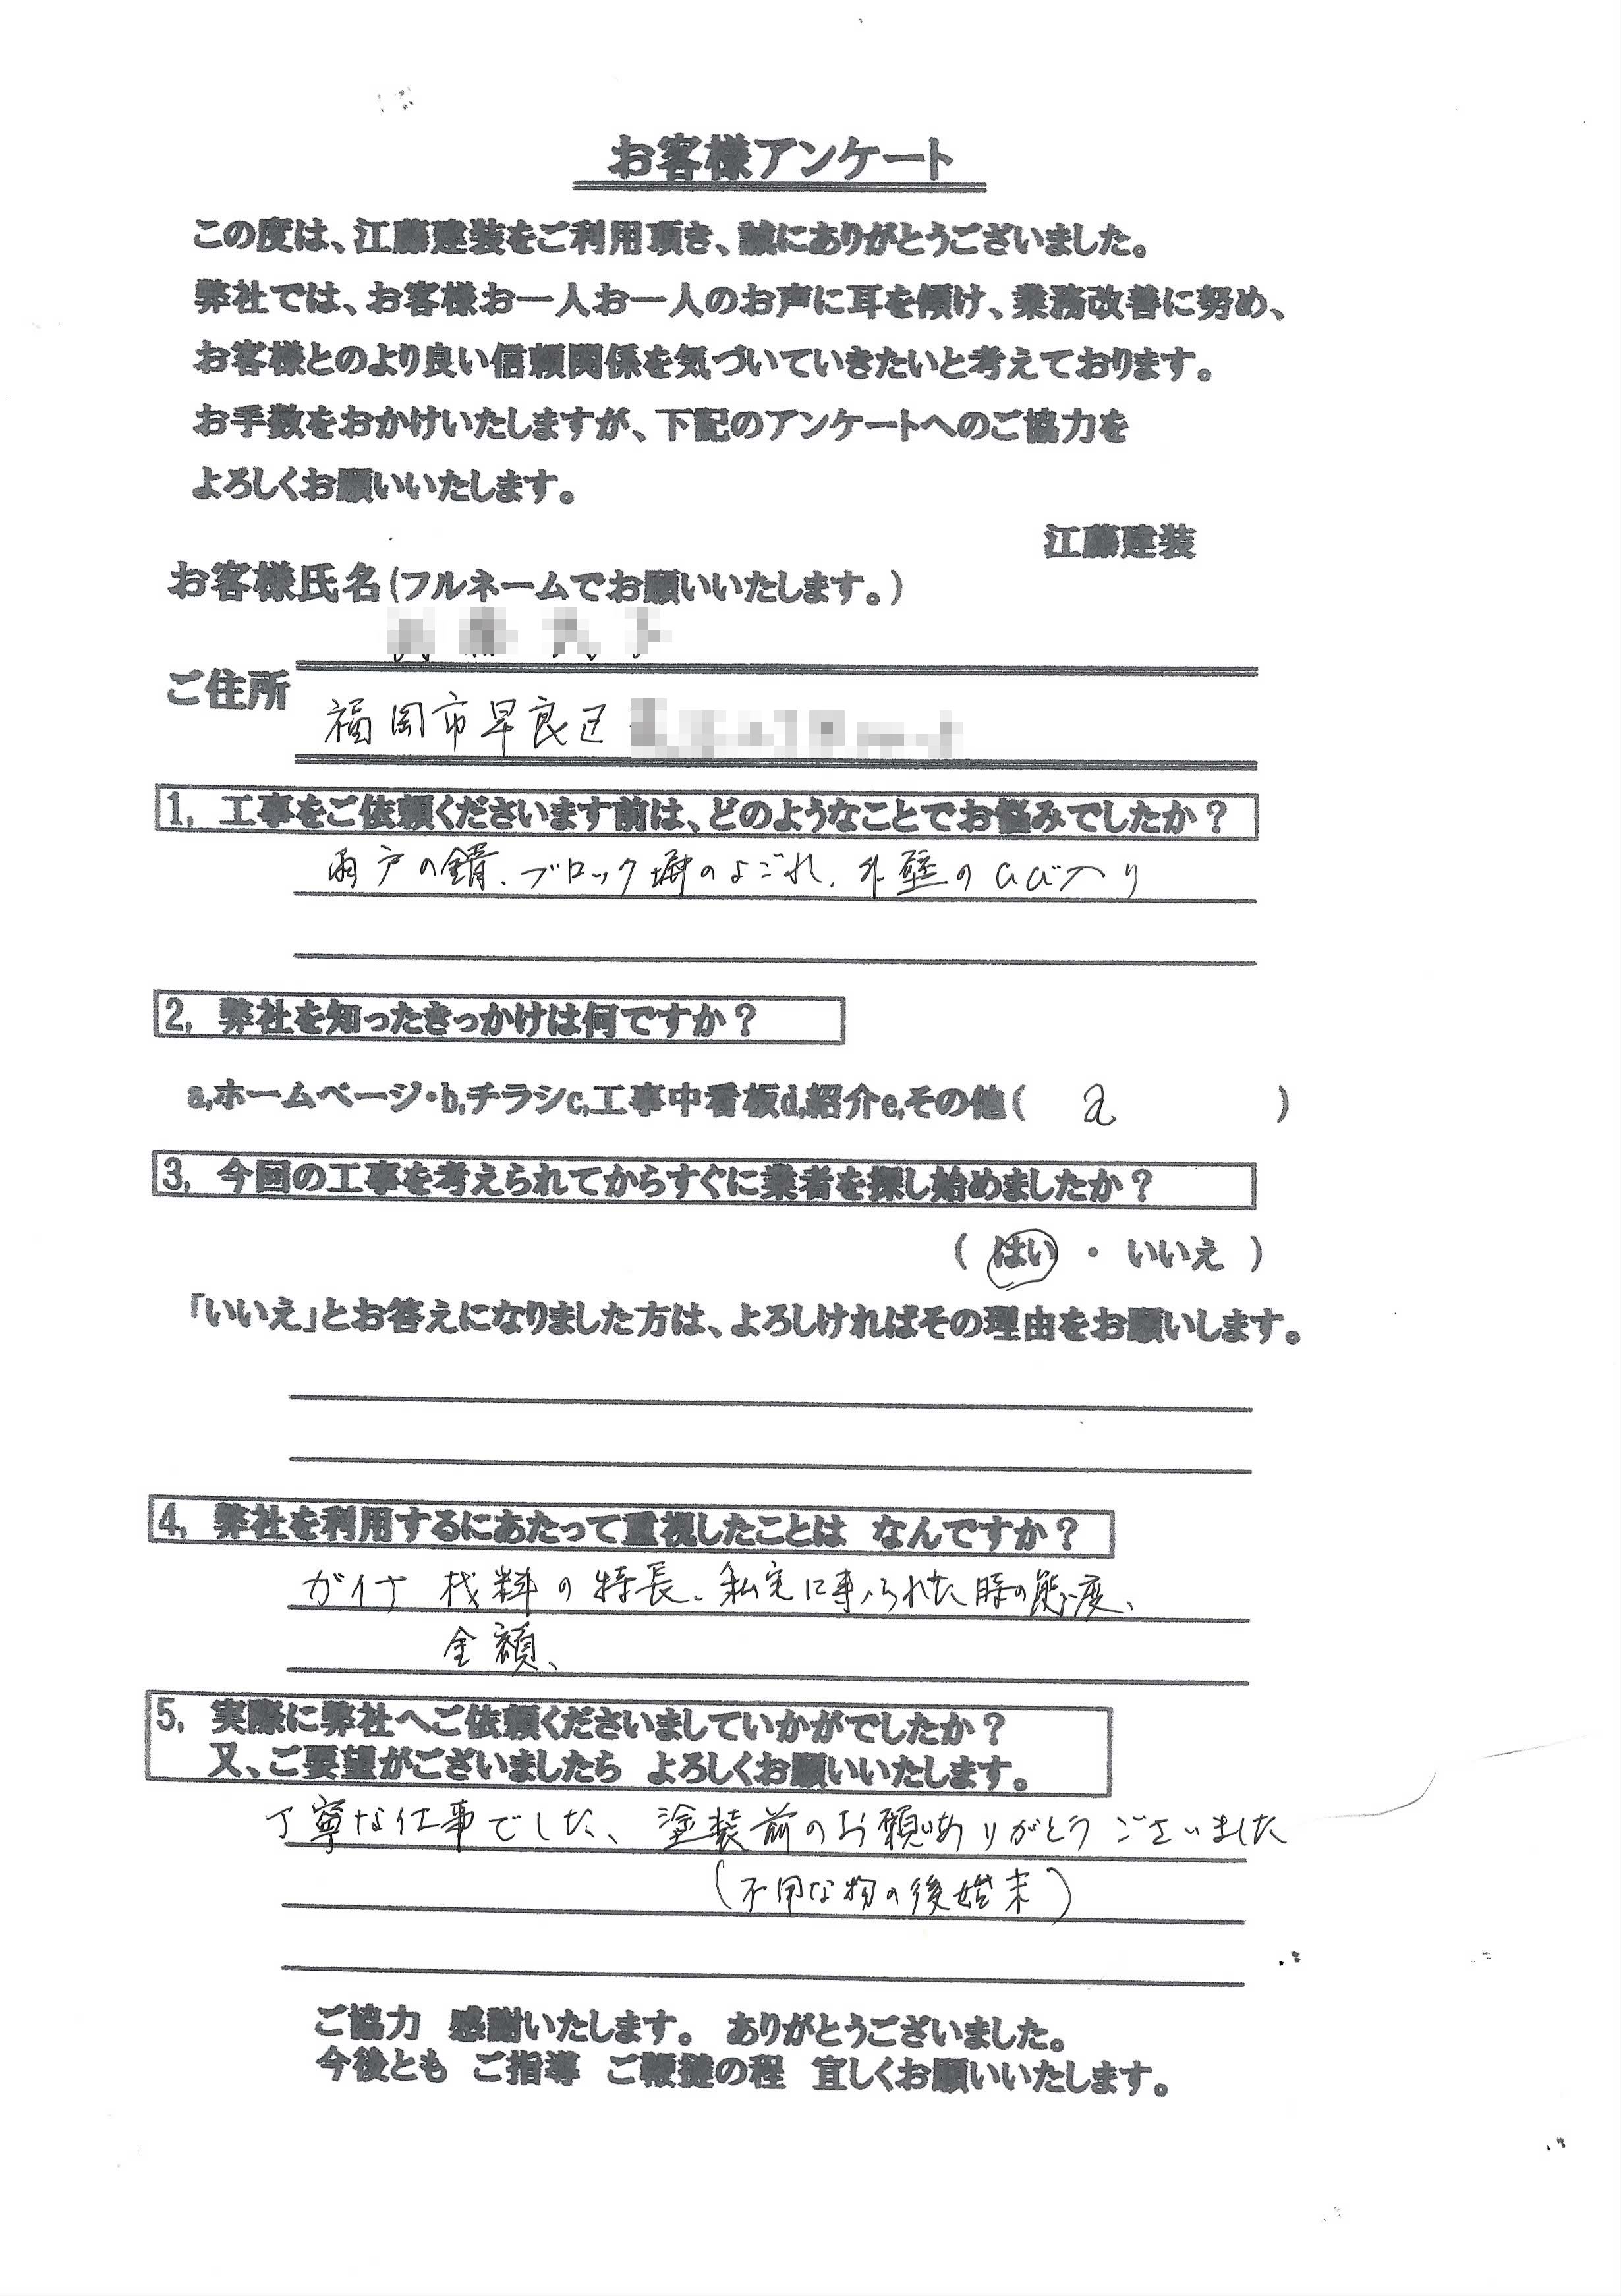 お客様アンケート
この度は、江藤建装をご利用頂き、誠にありがとうございました。
弊社では、お客様お一人お一人のお声に耳を傾け、業務改善に努め、
お客様とのより良い信頼関係を気づいていきたいと考えております。
お手数をおかけいたしますが、下記のアンケートへのご協力を
よろしくお願いいたします。
江藤建装
お客様氏名(フルネームでお願いいたします。)
ご住所
福岡市早良区
1, 工事をご依頼くださいます前は、どのようなことでお悩みでしたか?
雨戸の錆、ブロック塀のよごれ、外壁のひび入り
2, 弊社を知ったきっかけは何ですか?
a,ホームページ・b,チラシc,工事中看板d,紹介e,その他( a )
3, 今回の工事を考えられてからすぐに業者を探し始めましたか?
( はい ・ いいえ )
「いいえ」とお答えになりました方は、よろしければその理由をお願いします。
4, 弊社を利用するにあたって重視したことは なんですか?
ガイナ 材料の特長、私宅に来られた時の態度、
金額、
5, 実際に弊社へご依頼くださいましていかがでしたか?
又、ご要望がございましたら よろしくお願いいたします。
丁寧な仕事でした、塗装前のお願いありがとうございました
(不用な物の後始末)
ご協力 感謝いたします。 ありがとうございました。
今後とも ご指導 ご鞭撻の程 宜しくお願いいたします。